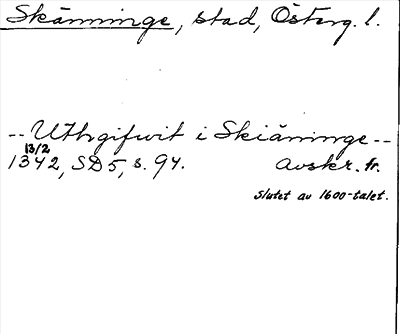 Skänninge, stad, Österg. l.
-- Uthgifwit i Skiäninge --
13/2
1342, SD 5, s. 94. Avskr. fr.
Slutet av 1600-talet.